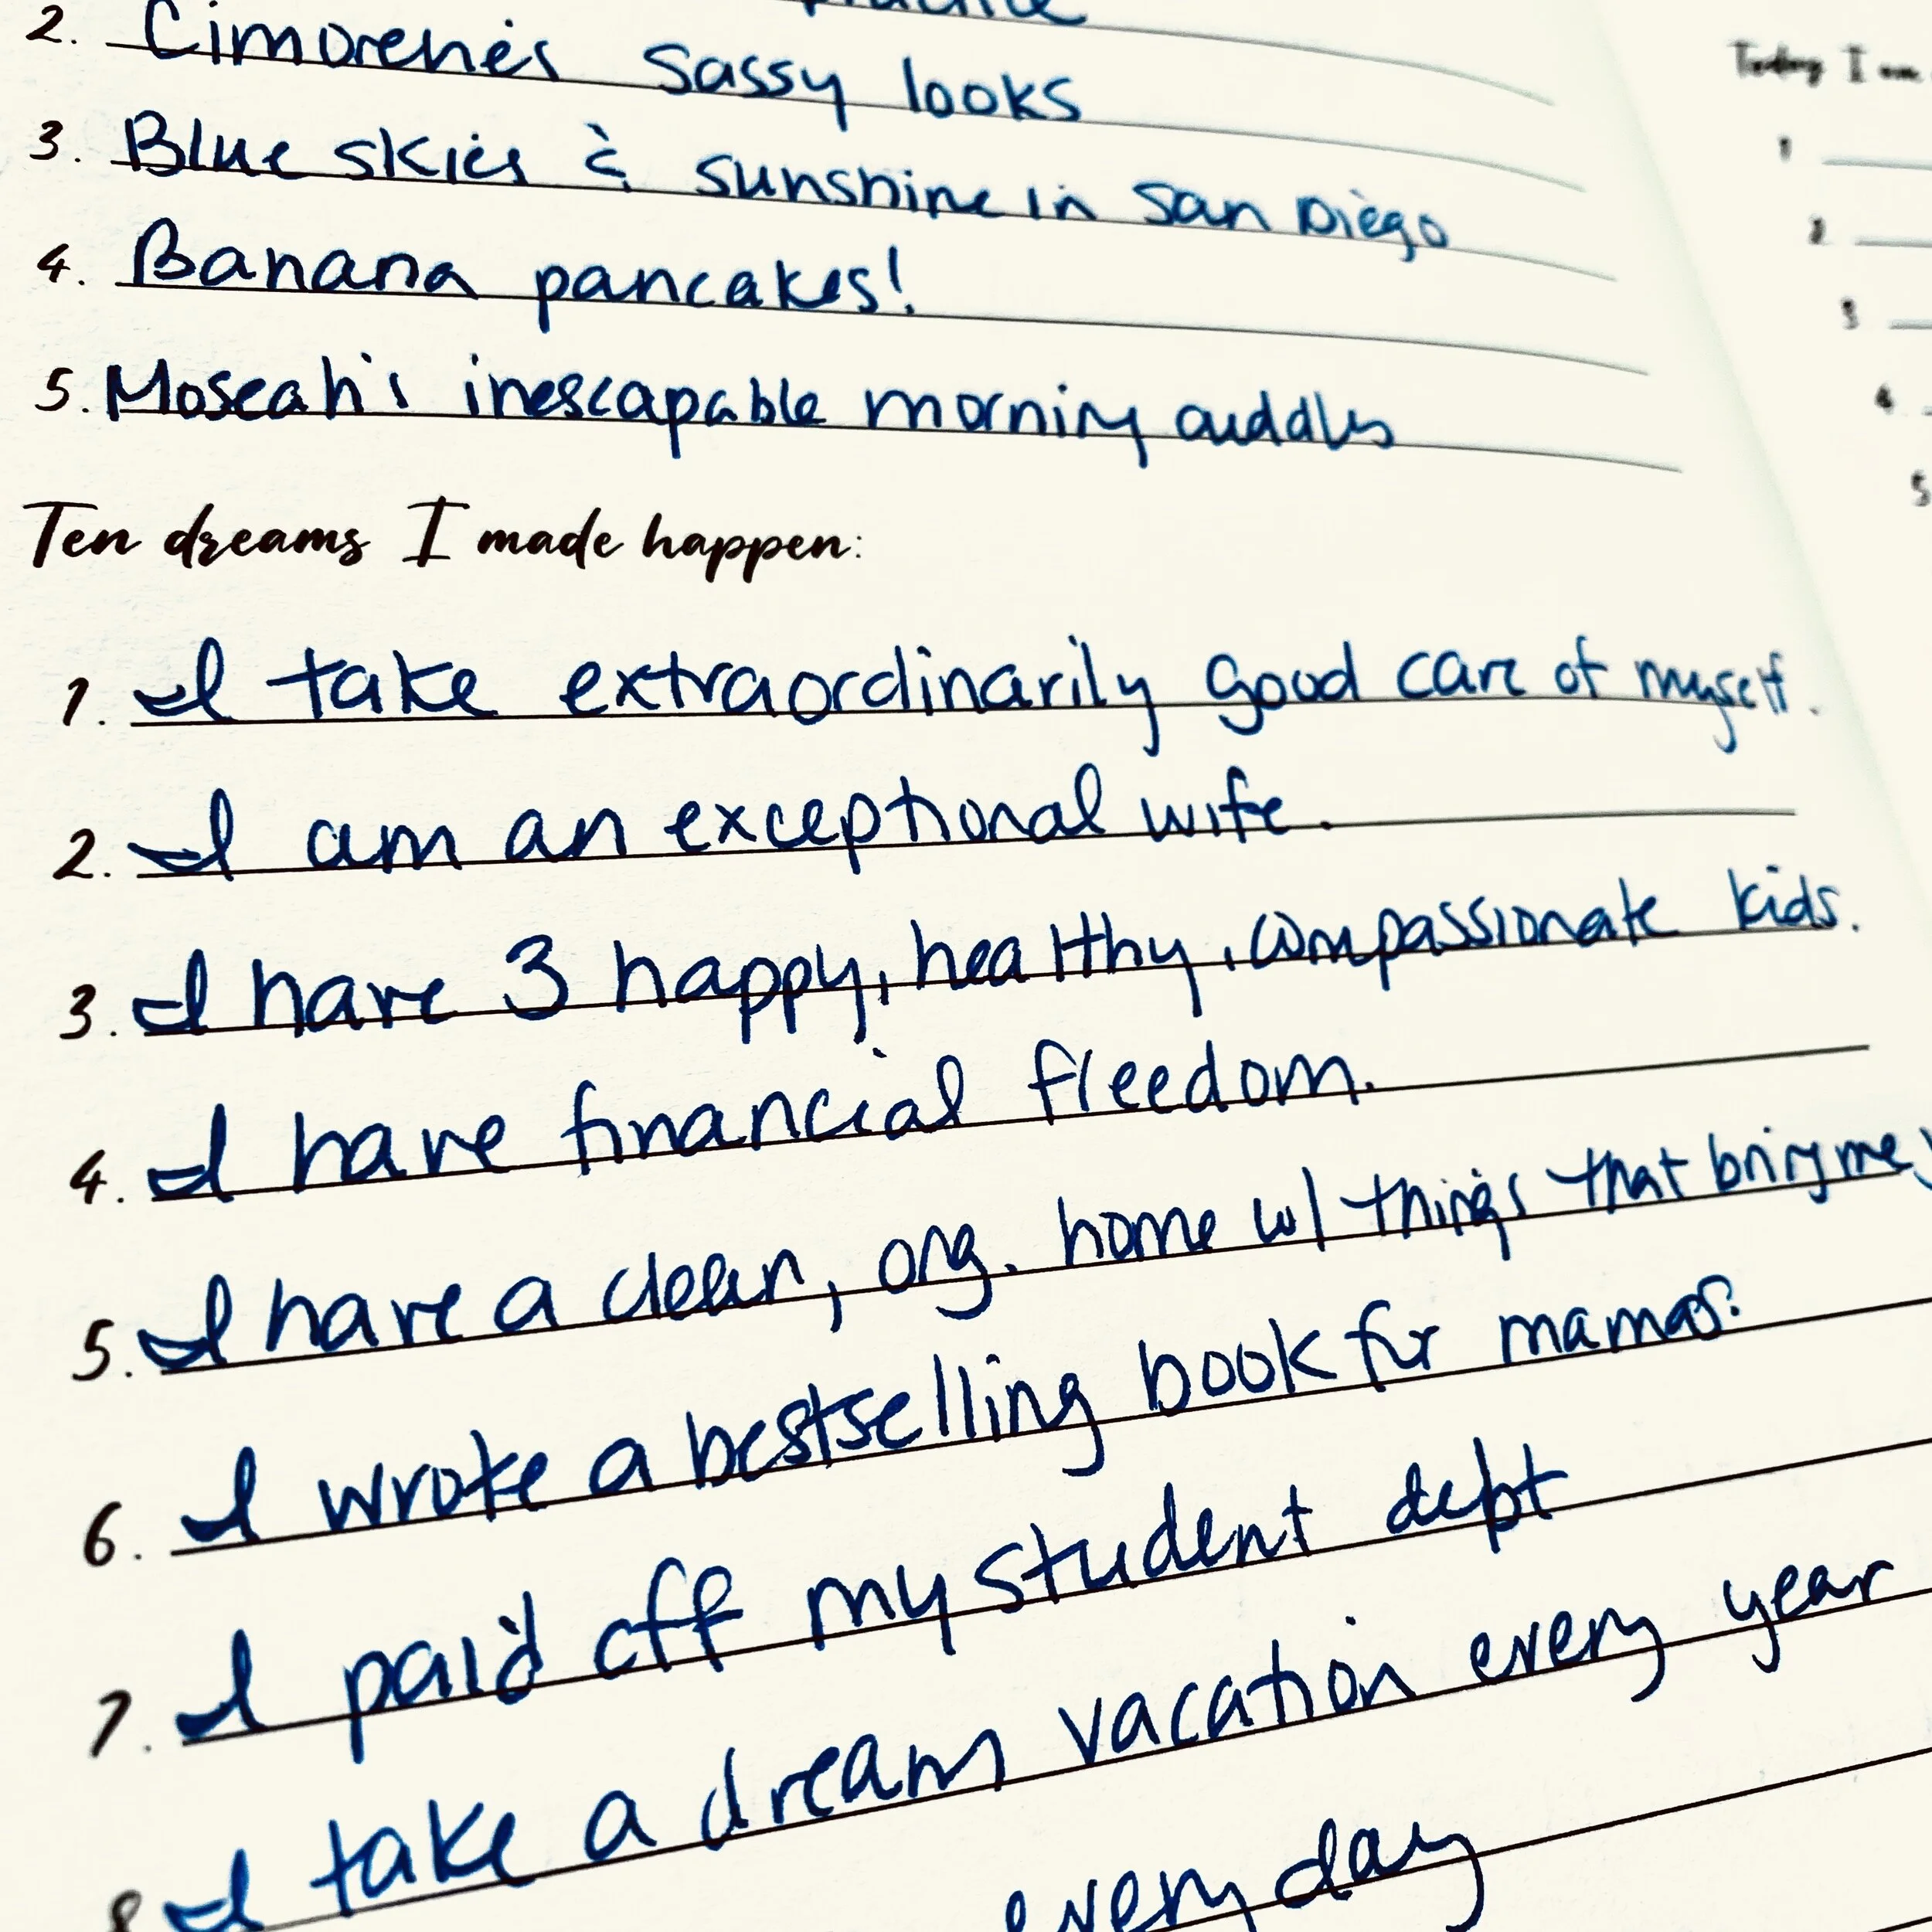 2. Cimorene's sassy looks
3. Blue skies & sunshine in San Diego
4. Banana pancakes!
5. Moseah's inescapable morning cuddles
Ten dreams I made happen:
1. I take extraordinarily good care of myself.
2. I am an exceptional wife.
3. I have 3 happy, healthy, compassionate kids.
4. I have financial freedom.
5. I have a clean, org. home w/ things that bring me
6. I wrote a bestselling book for mamas.
7. I paid off my student debt
8 I take a dream vacation every year
every day
Today I am
1
2
3
4
5